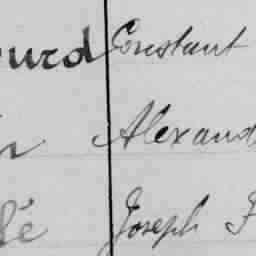 ourd Constant
Alexand
lé Joseph F